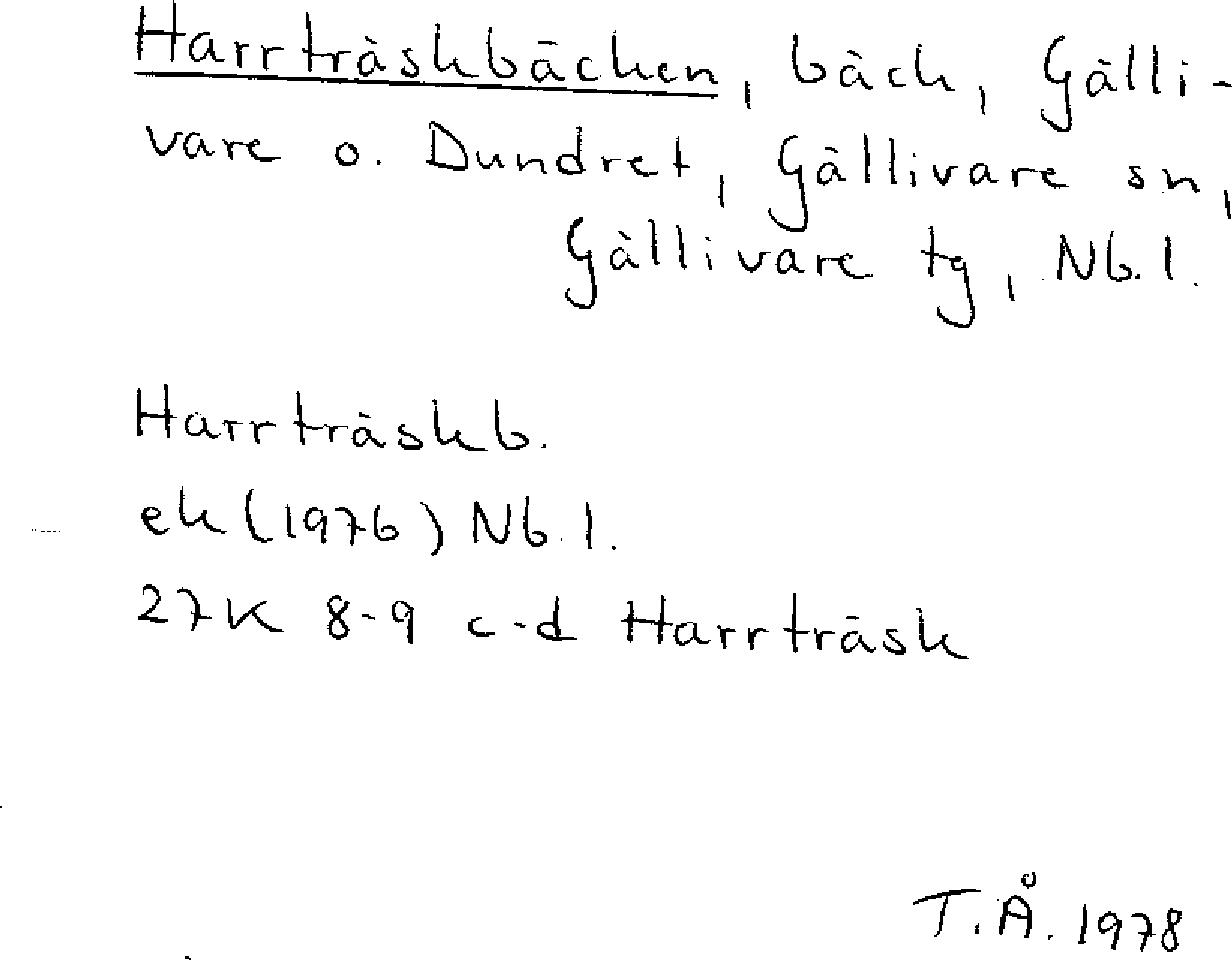 Harrträskbäcken, bäck, Gälli-
vare o. Dundret, Gällivare sn,
Gällivare tg, Nb.l.
Harrträskb.
ek (1976) Nb.l.
27K 8-9 c-d Harrträsk
T.Å. 1978